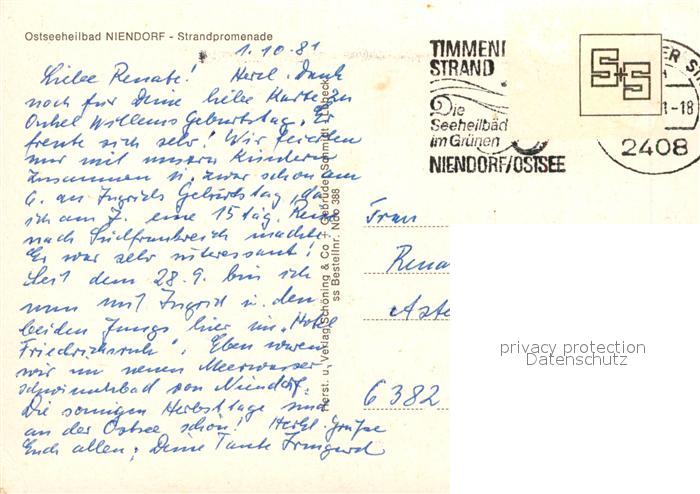 Ostseeheilbad NIENDORF - Strandpromenade
1.10.81
Liebe Renate! Herzl. Dank
noch für Deine liebe Karte zu
Onkel Willems Geburtstag. Er
freute sich sehr! Wir feierten
nur mit unsern Kindern
zusammen u. zwar schon am
6. an Ingrids Geburtstag, da
ich am 7. eine 15 täg. Reise
nach Südfrankreich machte.
Es war sehr interessant!
Seit dem 28.9. bin ich
nun mit Ingrid u. den
beiden Jungs hier im "Hotel
Friedrichsruh". Eben waren
wir im neuen Meerwasser
schwimmbad von Niendorf.
Die sonnigen Herbsttage sind
an der Ostsee schön! Herzl. Grüße
Euch allen, Deine Tante Irmgard
Herst. u. Verlag Schöning & Co + Gebrüder Schmidt · Lübeck
ss Bestellnr. Ndo 388
TIMMEN
STRAND
Die
Seeheilbad
im Grünen
NIENDORF/OSTSEE
S+S
ER S
-18
2408
Frau
Rena
Aste
6382
privacy protection
Datenschutz